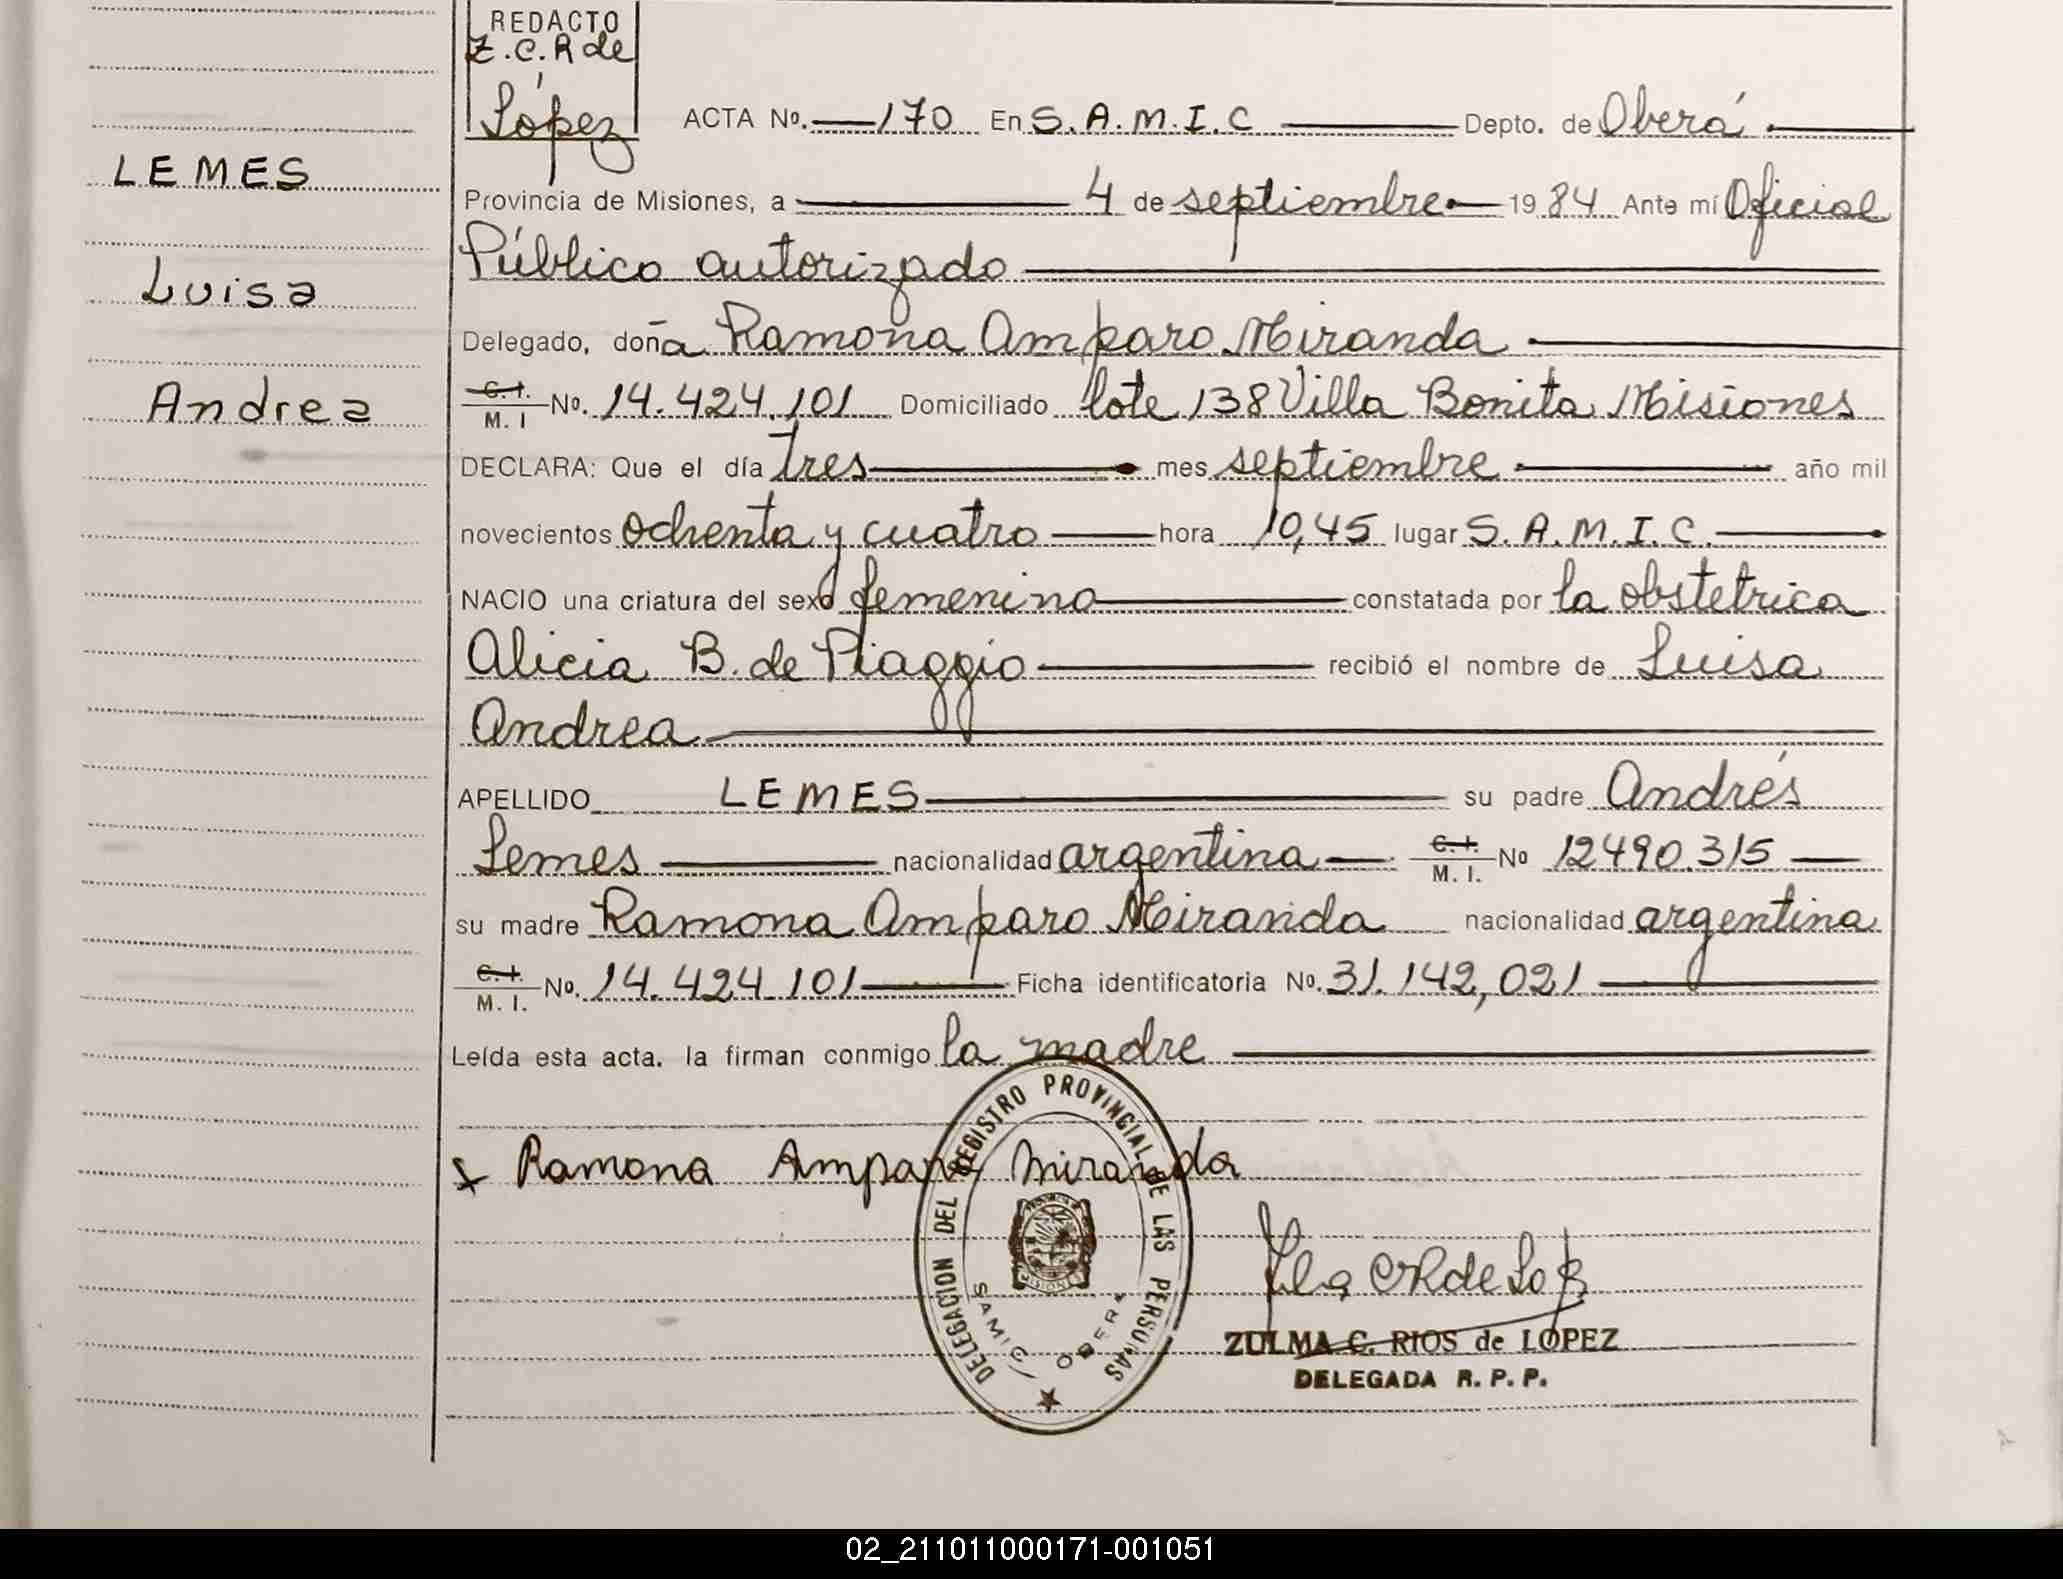 REDACTO
Z.C.R de
López
ACTA No. 170 En S.A.M.I.C Depto. de Oberá
LEMES
Provincia de Misiones, a 4 de septiembre 1984 Ante mí Oficial
Público autorizado
Luisa
Delegado, doña Ramona Amparo Miranda
Andrea
C.I. M.I No. 14.424.101 Domiciliado lote 138 Villa Bonita Misiones
DECLARA: Que el día tres mes septiembre año mil
novecientos ochenta y cuatro hora 10,45 lugar S.A.M.I.C.
NACIO una criatura del sexo femenino constatada por la obstetrica
Alicia B. de Piaggio recibió el nombre de Luisa
Andrea
APELLIDO LEMES su padre Andrés
Lemes nacionalidad argentina C.I. M.I. No 12490.315
su madre Ramona Amparo Miranda nacionalidad argentina
C.I. M.I. No. 14.424.101 Ficha identificatoria No. 31.142,021
Leída esta acta, la firman conmigo la madre
x Ramona Amparo Miranda
DELEGACION DEL REGISTRO PROVINCIAL DE LAS PERSONAS
SAMIC OBERA
MISIONES
ZULMA C. RIOS de LOPEZ
DELEGADA R. P. P.
02_211011000171-001051